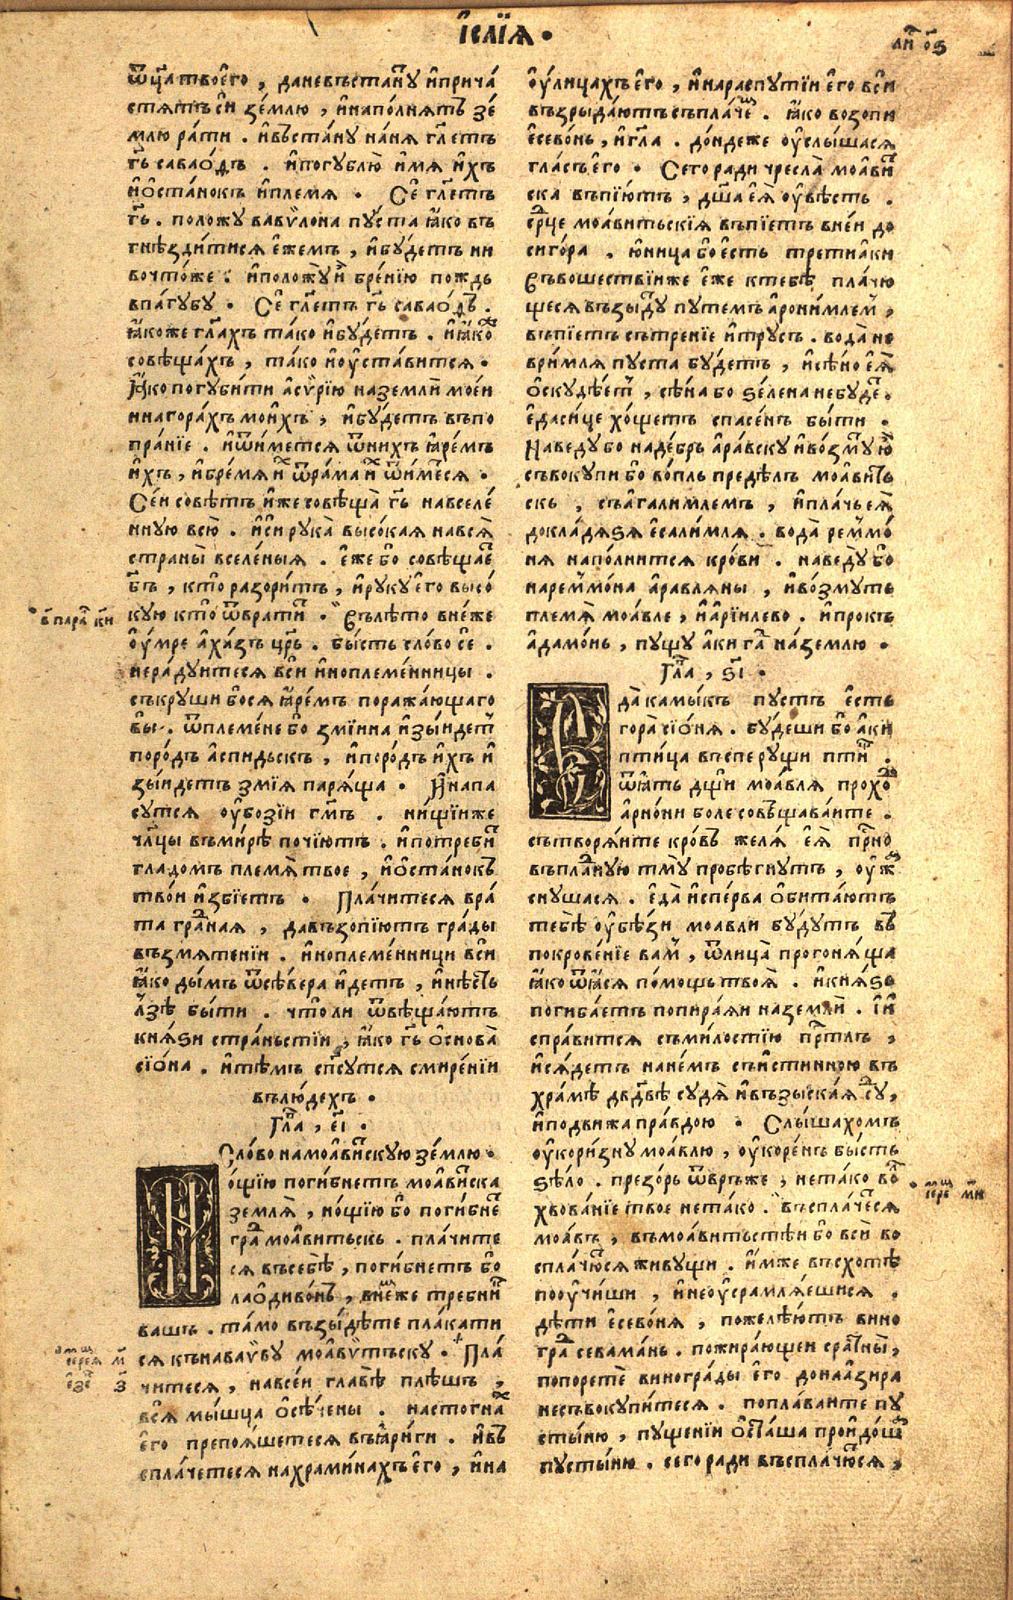 і҆са́їѧ •
ли҃ ѻ҃ѕ
ѿц҃а твоег̀о , да невъста́нꙋ и҆прича́
стѧтъ сѝ зе́млю , и҆напо́лнѧтъ зе́
млю ра́ти . и҆въста́нꙋ на́нѧ гл҃етъ
гь҃ саваѻ́ѳъ . и҆погꙋблю̀ и҆́мѧ и҆́хъ
и҆ѻ҆ста́нокъ и҆племѧ • Се́ гл҃етъ
гь҃ . положꙋ вавѷлона пꙋста ꙗ҆́ко въ
гнѣздитисѧ є҆жемъ , и҆бꙋ́детъ ни
вочто́же : и҆положꙋ̀ и҆̀ бре́нїю пождь
впа́гꙋбꙋ • Се́ гл҃етъ гь҃ саваѻ́ѳъ .
ꙗ҆́коже гл҃ахъ та́ко и҆бꙋ́детъ . и҆ꙗ҆́коже
совѣща́хъ , та́ко и҆ꙋ҆ста́витсѧ •
Ꙗ҆́ко погꙋби́ти а҆сѷ́рїю на землѝ мое́и
и на гора́хъ мои́хъ , и҆бꙋ́детъ въпо
пра́нїе . и҆ѿи́метсѧ ѿни́хъ ꙗ҆ре́мъ
и҆́хъ , и҆бре́мѧ и҆́х ѿра́ма и҆́х ѿи́метсѧ •
Се́и совѣ́тъ и҆́же совѣща̀ гь҃ навселе́
ннꙋю всю̀ . и҆сѝ рꙋка̀ высо́каѧ навсѧ̀
страны̀ вселе́ныѧ . є҆́же бо совѣщае
бг҃ъ , кто̀ разори́тъ , и҆рꙋкꙋ̀ є҆го̀ высо́
кꙋю кто̀ ѿврати́т • Въ лѣто вне́же
ꙋ҆́мре а҆ха́зъ цр҃ь . бы́сть сло́во се́ .
нера́дꙋитесѧ всѝ и҆ноплеме́нницы .
съкрꙋшибосѧ ꙗ҆ре́мъ поража́ющаго
вы̀ . ѿплемене бо змїина и҆зы́идет
поро́дъ а҆спидьскъ , и҆поро́дъ и҆́хъ и҆
зы́идетъ змїѧ парѧ́ща • И҆напа
сꙋтсѧ ꙋ҆бозїи гм҃ъ . ни́щїиже
чл҃цы въми́рѣ почїютъ . и҆потребит
гла́домъ племѧ̀ твое , и҆ѻ҆ста́нокъ
тво́и и҆збїетъ • Пла́читесѧ вра
та гра́дная , давъзопїютъ гра́ды
възмѧтенїи . и҆ноплеме́нници всѝ
ꙗ҆́ко ды́мъ ѿсѣ́вера и҆де́тъ , и҆нѣ́сть
лзѣ̀ бы́ти . что̀ли ѿвѣща́ютъ
кнѧѕи стра́ньстїи , ꙗ҆́ко гь҃ ѻ҆снова̀
сїо́на . и҆тѣ́мъ спс҃ꙋтсѧ смире́нїи
въ лю́дехъ •
Гл҃а , є҃і •
Сло́во на моа҆ви́скꙋю зе́млю •
Но́щїю поги́бнетъ моа҆ви́ска
землѧ̀ , но́щїю бо поги́бне
гра́д моа҆ви́тьскъ . пла́чите
сѧ въсебѣ̀ , поги́бнетъ бо
лаѻдиво́нъ , вне́же требни́к
вашъ . та́мо възы́дѣте пла́кати
сѧ къ нава́ѵвꙋ моа҆ви́тъскꙋ . Пла́
читесѧ , навсе́и гла́вѣ плѣ́шъ ,
всѧ̀ мы́шца ѻ҆сѣ́чены . на сто́гнах
є҆го̀ препоѧ́шетесѧ въ ꙗ҆́риги . и҆въ
спла́четесѧ нахра́минахъ є҆го̀ , и҆на
ꙋ҆́лицахъ є҆го̀ , и҆нараспꙋтїи є҆го̀ всѝ
възрыда́ютъ съпла́чем . ꙗ҆́ко возопи
є҆сево́нь , и҆гл҃а . до́ндеже ꙋ҆слы́шасѧ
гла́съ є҆го̀ • Сего ради чресла̀ моа҆ви́т
ска въпїю́тъ , дш҃а є҆ѧ̀ ꙋ҆вѣсть .
ср҃це моа҆ви́тьскїѧ въпїе́тъ вне́и до
сиго́ра . ю҆ница бо є҆сть трети а҆ки
Въ вошествїи же є҆́же ктебѣ̀ пла́чю
щесѧ възы́дꙋ пꙋтемъ а҆ронїимлем ,
въпїе́тъ сътре́нїе и҆трꙋсъ . вода̀ не
врїмлѧ пꙋста бꙋдетъ , и҆сѣ́но є҆ѧ̀
ѻ҆скꙋдѣет , сѣ́на бо ѕе́лена небꙋде .
є҆да си́це хо́щетъ спасе́нъ бы́ти .
Наведꙋ бо надебрь а҆ра́вскꙋ и҆во́змꙋт ю҆̀
съвокꙋпи бо во́пль предѣ́лъ моа҆ви́ть
скъ , съ а҆гали́млемъ , и҆пла́чь є҆ѧ̀
докла́дѧѕѧ є҆сали́млѧ . вода̀ ремѡ́
нѧ напо́лнитсѧ кро́ви . наведꙋ̀ бо
наремѡ́на а҆равлѧны , и҆во́змꙋтъ
племѧ̀ моа҆вле , и҆а҆рїилево . и҆прокъ
а҆дамо́нь , пꙋщꙋ а҆ки га́д на́землю •
Гл҃а , ѕ҃і •
да̀ ка́мыкъ пꙋстъ є҆сть
гора̀ сїо́нѧ . бꙋ́деши бо а҆ки
пти́ца въсперꙋщи пти́ц .
ѿѧ́тъ дщ҃и моа҆влѧ прохо́
а҆рно́ни боле совѣщава́ите .
сътворѧ́ите кро́въ желѧ́ є҆ѧ̀ пр҃но
въпла́днꙋю тмꙋ̀ пробѣ́гнꙋтъ , ꙋ҆ж
снꙋшасѧ . є҆да̀ и҆спе́рва ѻ҆бита́ютъ
тебѣ̀ ꙋ҆бѣ́зи моа҆вли бꙋдꙋтъ въ
покрове́нїе ва́м , ѿлица̀ прогонѧ́ща
ꙗ҆́ко ѿѧ́сѧ по́мощь твоѧ̀ . и҆кнѧ́ѕь
погиба́етъ попираѧи наземлѝ . и҆и
спра́витсѧ съми́лостїю пр҃тлъ ,
и҆сѧдетъ нане́мъ съи҆стинною въ
хра́мѣ дв҃двѣ сꙋдѧ̀ и҆възыска́ѧ сꙋ́д ,
и҆подви́жа пра́вдою • Слы́шахомъ
ꙋ҆кори́знꙋ моа҆влю , ꙋ҆коре́нъ бы́сть
ѕѣ́ло . презо́рь ѿврьже , не та́ко во
хвова́нїе твое нета́ко . Въспла́четсѧ
моа҆въ , въ моа҆ви́тьстѣи бо всѝ во
спла́чютсѧ живꙋщи . и҆́мже въсхотѣ̀
поꙋ҆чи́ши , и҆неꙋ҆срамлѧ́ешисѧ .
дѣ́ти є҆сево́нѧ , пожелѣ́ютъ вино
гра́д севама́нь . пожира́ющеи стра́ны ,
попорете виногра́ды є҆го̀ дона́ѧзира
несъвокꙋпи́тесѧ . попла́ваите пꙋ
сты́ню , пꙋщенїи ѻ҆ста́ша проидо́ш
пꙋсты́ню . сего ради въспла́чюсѧ ,
в҃ пара́ к҃и
є҆ре м҃и